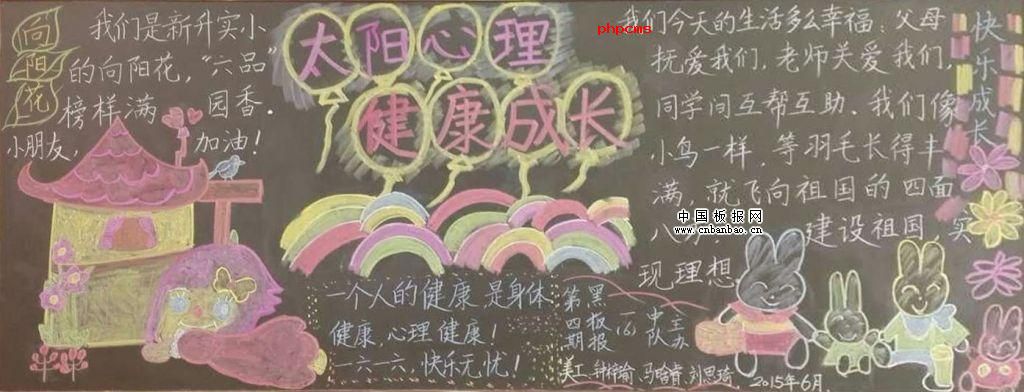 向
阳
花
我们是新升实小
的向阳花，“六品”
榜样满 园香.
小朋友， 加油!
太阳心理
健康成长
phpcms
我们今天的生活多么幸福，父母
抚爱我们，老师关爱我们，
同学间互帮互助.我们像
小鸟一样，等羽毛长得丰
满，就飞向祖国的四面
建设祖国 实
现理想
快乐成长
中国板报网
www.cnbanbao.cn
一个人的健康是身体
健康，心理健康!
一六六，快乐无忧!
第四期
黑板报
一(6)
中队
王苏
美工:
刘思琦
2015年6月